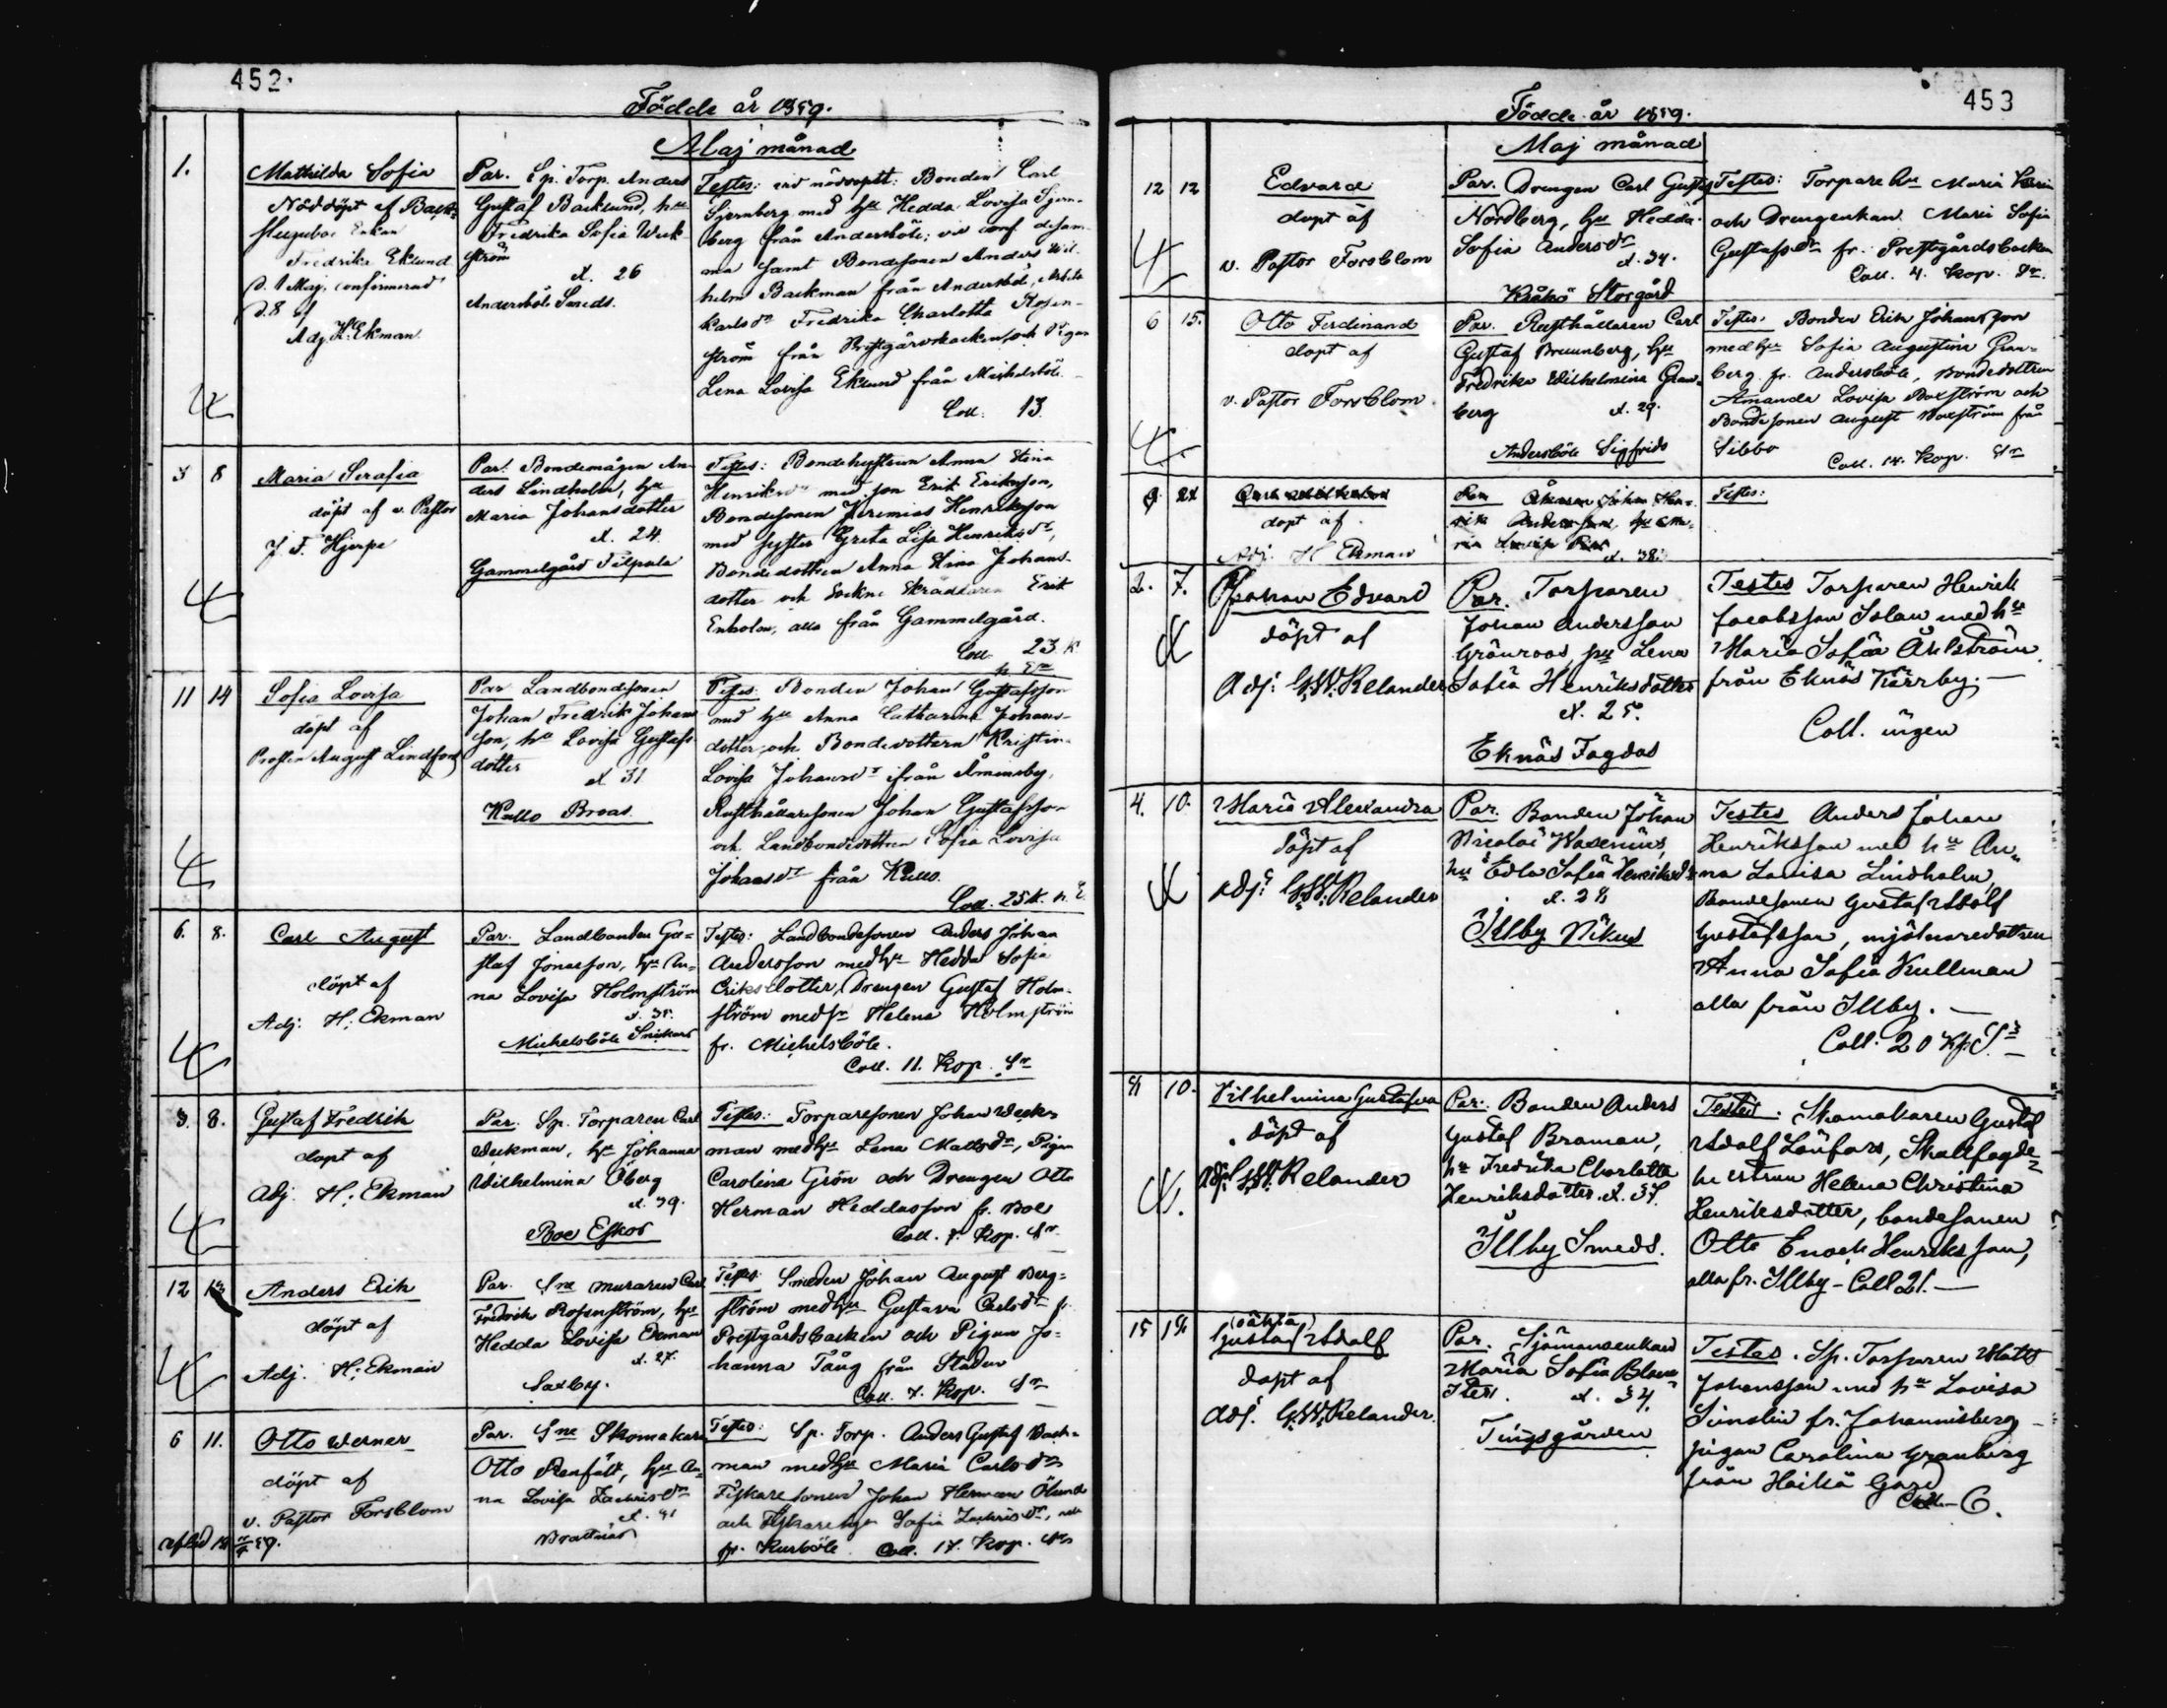 452.
Födde år 1859.
Maj månad
1.
Mathilda Sofia
Nöddöpt af Back-
stugubor Enkan
Fredrika Eklund
d. 1 Maj, confirmerad
d. 8 af
Adj. H. Ekman
Par. Sp. Torp. Anders
Gustaf Backlund, hu
Fredrika Sofia Weck-
ström
æt. 26
Andersböle Smeds.
Testes: vid nöddopet: Bonden Carl
Sjernberg med hu Hedda Lovisa Sjern-
berg från Andersböle; vid conf. desam-
ma samt Bondesonen Anders Wil-
helm Backman från Andersböle,
Karlsdr Fredrika Charlotta Rosen-
ström från Prestgårdsbacken, och Pigan
Lena Lovisa Eklund från Michelsböle
Coll. 13.
3 8
Maria Serafia
döpt af v. Pastor
J. F. Hjerpe
Par. Bondemågen An-
ders Lindholm, hu
Maria Johansdotter
æt. 24.
Gammelgård Filpula
Testes: Bondehustrun Anna Stina
Henriksdr med son Erik Eriksson,
Bondesonen Jeremias Henriksson
med syster Greta Lisa Henriksdr,
Bondedottren Anna Stina Johans-
dotter och Sockne Skräddaren Erik
Enholm, alla från Gammelgård.
Coll. 23 K
11 14
Sofia Lovisa
döpt af
Prosten August Lindfors
Par Landbondesonen
Johan Fredrik Johans-
son, hu Lovisa Gustafs-
dotter
æt 31
Kullo Broas.
Testes: Bonden Johan Gustafsson
med hu Anna Catharina Johans-
dotter, och Bondedottern Kristin-
Lovisa Johansdr ifrån Åminsby,
Rusthållaresonen Johan Gustafsson
och Landbondedottren Sofia Lovisa
Johansdr från Kullo.
Coll. 25 K.
6. 8.
Carl August
döpt af
Adj. H. Ekman
Par. Landbonden Gu-
staf Jonasson, hu An-
na Lovisa Holmström
Michelsböle Snickars
Testes: Landbondesonen Anders Johan
Andersson med hu Hedda Sofia
Eriksdotter, Drengen Gustaf Holm-
ström med Helena Holmström
fr. Michelsböle.
Coll. 11. Kop. Sr
3. 8.
Gustaf Fredrik
döpt af
Adj. H. Ekman
Par. Sp. Torparen Carl
Weckman, hu Johanna
Wilhelmina Öberg
æt. 39.
Boe Eskos
Testes: Torparesonen Johan Weck-
man med hu Lena Mattsdr, Pigan
Carolina Grön och Drengen Otto
Herman Heddasson fr. Boe
Coll. 7. Kop. Sr
12 13
Anders Erik
döpt af
Adj. H. Ekman
Par. Sne muraren Carl
Fredrik Rosenström, hu
Hedda Lovisa Ekman
æt. 27.
Saxby.
Testes: Smeden Johan August Berg-
ström med hu Gustava Carlsdr fr.
Prestgårdsbacken och Pigan Jo-
hanna Tång från Staden
Coll. 7. Kop. Sr
6 11.
Otto Werner
döpt af
v. Pastor Forsblom
Par. Sne Skomakare
Otto Renfält, hu An-
na Lovisa Zachrisdr
æt. 41
Brattnäs
Testes: Sp. Torp. Anders Gustaf Back-
man med hu Maria Carlsdr
Fiskaresonen Johan Herman Ölund
och Fiskare hu Sofia Zachrisdr,
fr. Kurböle. Coll. 17. Kop. Sr
453
Födde år 1859.
Maj månad
12 12
Edvard
döpt af
v. Pastor Forsblom
Par. Drengen Carl Gustaf
Nordberg, hu Hedda
Sofia Andersdr
æt. 34.
Kråkö Storgård
Testes: Torpare hu Maria
och Drengenkan Maria Sofia
Gustafsdr fr. Prestgårdsbacken
Coll. 4. Kop. Sr.
6 15.
Otto Ferdinand
döpt af
v. Pastor Forsblom
Par. Rusthållaren Carl
Gustaf Brunnberg, hu
Fredrika Wilhelmina Gran-
berg
æt. 29.
Andersböle Sigfrids
Testes: Bonden Erik Johansson
med hu Sofia Augustina Gran-
berg fr. Andersböle, Bondedottren
Amanda Lovisa Boxström och
Bondesonen August Boxström från
Sibbo
Coll. 14. Kop. Sr
döpt af
Adj. H Ekman
æt. 38.
Testes:
2. 7.
Johan Edvard
döpt af
Adj: G.W. Relander
Par. Torparen
Johan Andersson
Grönroos, hu Lena
Sofia Henriksdotter
æt. 25.
Eknäs Fogdas
Testes Torparen Henrik
Jacobsson Solan med hu
Maria Sofia Åhlström
från Eknäs Kärrby. —
Coll. ingen
4. 10.
Maria Alexandra
döpt af
Adj: G.W. Relander
Par. Bonden Johan
Nicolai Wasenius,
hu Edla Sofia Henriksdr
æt. 28
Illby Nikus
Testes Anders Johan
Henriksson med hu An-
na Lovisa Lindholm,
Bondesonen Gustaf Adolf
Gustafsson, mjölnaredottren
Anna Sofia Kullman
alla från Illby. —
Coll. 20 Kp. Sr
10.
Vilhelmina Gustafva
döpt af
Adj. G.W. Relander
Par. Bonden Anders
Gustaf Braman,
hu Fredrika Charlotta
Henriksdotter. æt. 37.
Illby Smeds.
Testes: Skomakaren Gustaf
Adolf Löfors, Skallfogde-
hustrun Helena Christina
Henriksdotter, bondesonen
Otto Enoch Henriksson,
alla fr. Illby — Coll 21. —
15
(oäkta)
Gustaf Adolf
döpt af
Adj. G.W. Relander.
Par. Sjömansenkan
Maria Sofia Blom-
ster. æt. 34.
Tingsgården
Testes. Sp. Torparen Matts
Johansson med hu Lovisa
Sunelin fr. Johannisberg —
pigan Carolina Granberg
från Haikå Gård
Coll — 6.